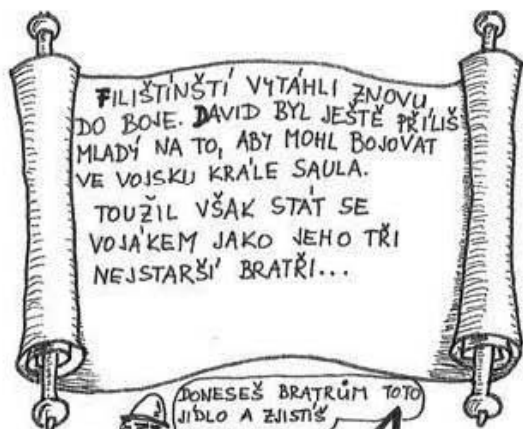 FILIŠTÍNŠTÍ VYTÁHLI ZNOVU
DO BOJE. DAVID BYL JEŠTĚ PŘÍLIŠ
MLADÝ NA TO, ABY MOHL BOJOVAT
VE VOJSKU KRÁLE SAULA.
TOUŽIL VŠAK STÁT SE
VOJÁKEM JAKO JEHO TŘI
NEJSTARŠÍ BRATŘI...
DONESEŠ BRATRŮM TOTO
JÍDLO A ZJISTÍŠ